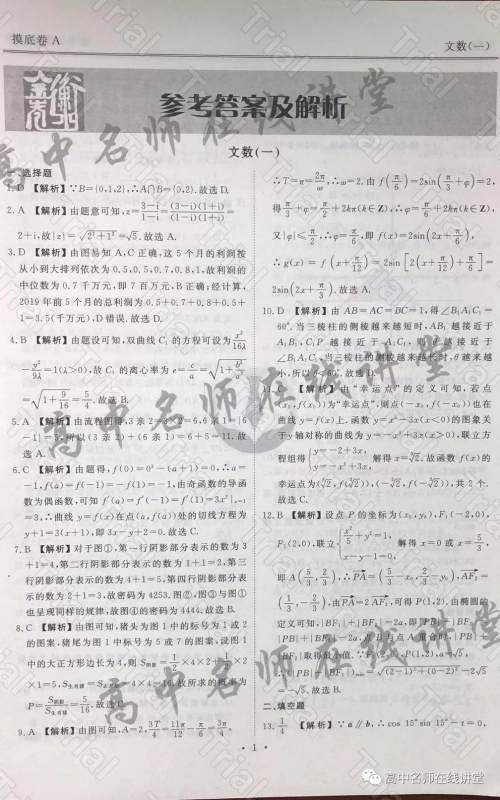 摸底卷 A
文数(一)
金卷
参考答案及解析
文数(一)
一、选择题
1. D 【解析】∵B={0,1,2},∴A∩B={0,2}.故选 D.
2. A 【解析】由题意可知,z=(3-i)/(1-i)=(3-i)(1+i)/((1-i)(1+i))=
2+i,故|z|=√(2²+1²)=√5.故选 A.
3. D 【解析】由图易知 A,C 正确,这 5 个月的利润按
从小到大排列依次为 0.5,0.5,0.7,0.8,1,故利润的
中位数为 0.7 千万元,即 7 百万元,B 正确;经计算,
2019 年前 5 个月的总利润为 0.5+0.7+0.8+0.5+
1=3.5(千万元),D 错误.故选 D.
4. B 【解析】由题设可知,双曲线 C₁ 的方程可设为 x²/16λ
-y²/9λ=1(λ>0),故 C₁ 的离心率为 e=c/a=√(1+b²/a²)
=√(1+9/16)=5/4.故选 B.
5. A 【解析】由流程图得,3 亲 2=3×2=6,6 亲 1=|6
-1|=5,所以(3 亲 2)+(6 亲 1)=6+5=11.故
选 A.
6. C 【解析】由题得,f(0)=0³-(a+1)=0,∴a=
-1,f(a)=f(-1)=-f(1)=-1,由奇函数的导函
数为偶函数,可知 f′(a)=f′(-1)=f′(1)=3x²|ₓ₌₁
=3,∴曲线 y=f(x)在点(a,f(a))处的切线方程为
y+1=3(x+1),即 3x-y+2=0.故选 C.
7. B 【解析】对于图①,第一行阴影部分表示的数为 3
+1=4,第二行阴影部分表示的数为 1+1=2,第三
行阴影部分表示的数为 4+1=5,第四行阴影部分表
示的数为 2+1=3,故密码为 4253.图②,图③与图①
也呈现同样的规律,故图④的密码为 4446.故选 B.
8. C 【解析】由图可知,猪头为图 1 中的标号为 1 或 2
的图案,猪尾为图 1 中标号为 5 或 7 的图案,设图 1
中的大正方形边长为 4,则 S阴影=1/2×4×2+1/2×2
×1=5,S生肖猪=S正方形=4×4=16.故所求的概率为
P=S阴影/S生肖猪=5/16.故选 C.
9. A 【解析】由图可知,A=2,3T/4=11π/12-π/6=3π/4,
∴T=π=2π/ω,∴ω=2.由 f(π/6)=2sin(π/3+φ)=2,
得 π/3+φ=π/2+2kπ(k∈Z),∴φ=π/6+2kπ(k∈Z),
又|φ|≤π/2,∴φ=π/6,即 f(x)=2sin(2x+π/6),
∴g(x)=f(x+π/12)=2sin[2(x+π/12)+π/6]=
2sin(2x+π/3).故选 A.
10. D 【解析】由 AB=AC=BC=1,得∠B₁A₁C₁=
60°.当三棱柱的侧棱越来越短时,AB₁ 越接近于
A₁B₁,C₁P 越接近于 A₁C₁,则 θ 越接近于
∠B₁A₁C₁,当三棱柱的侧棱越来越长时,θ 越来越
小,所以 θ<60°.故选 D.
11. C 【解析】由“幸运点”的定义可知,若点
(x₀,f(x₀))为“幸运点”,则点(-x₀,f(-x₀))也在
曲线 y=f(x)上.函数 y=x³-3x(x<0)的图象关
于 y 轴对称的曲线为 y=-x³+3x(x>0),联立方
程组得{y=-2+3x, y=-x³+3x, 解得 x=∛2.故函数 f(x)的
幸运点为(∛2,f(∛2)),(-∛2,f(-∛2)),共 2 个.
故选 C.
12. B 【解析】设点 P 的坐标为(x₀,y₀),F₁(-2,0),
F₂(2,0),联立{x²/5+y²=1, x-y-1=0, 解得 x=0 或 x=5/3,
即 A(5/3,2/3),∴PA=(5/3-x₀,2/3-y₀),AF₂=
(1/3,-2/3),由PA=2AF₂,可得 P(1,2).由椭圆的
定义可知,|BF₁|+|BF₂|=2a,即|PB|+|BF₁|=
二、填空题
13. 1/4 【解析】∵a∥b,∴cos 15°sin 15°-t=0,
· 1 ·
高中名师在线讲堂
高中名师在线讲堂
高中名师在线讲堂
高中名师在线讲堂
Trial